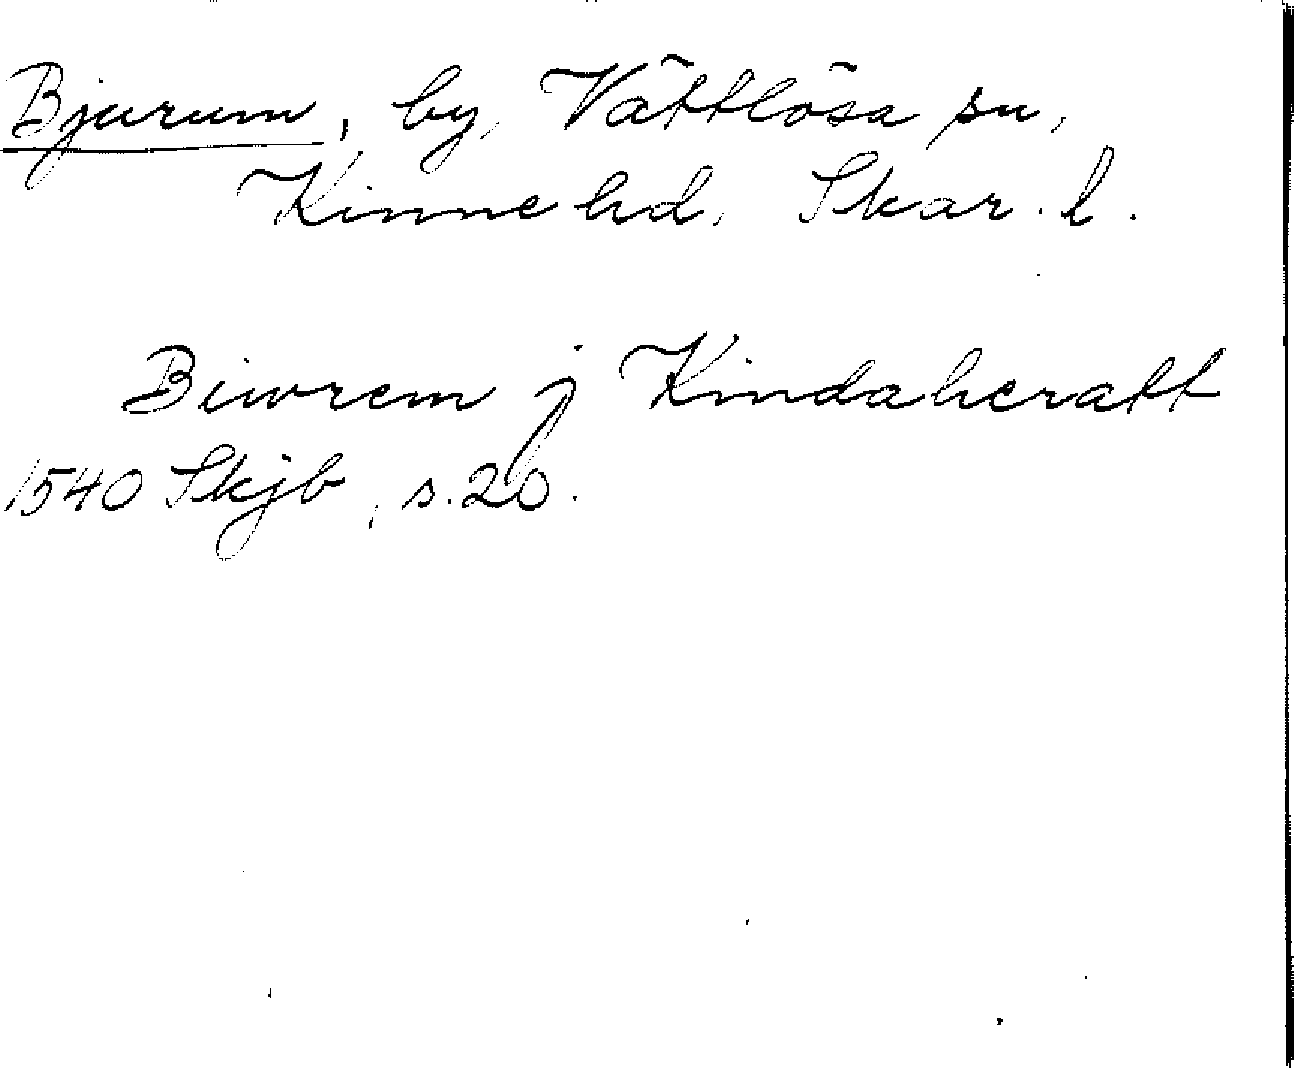 Bjurum, by, Vättlösa sn,
Kinne hd, Skar. l.
Biwrem j Kindaheratt
1540 Skjb, s. 20.